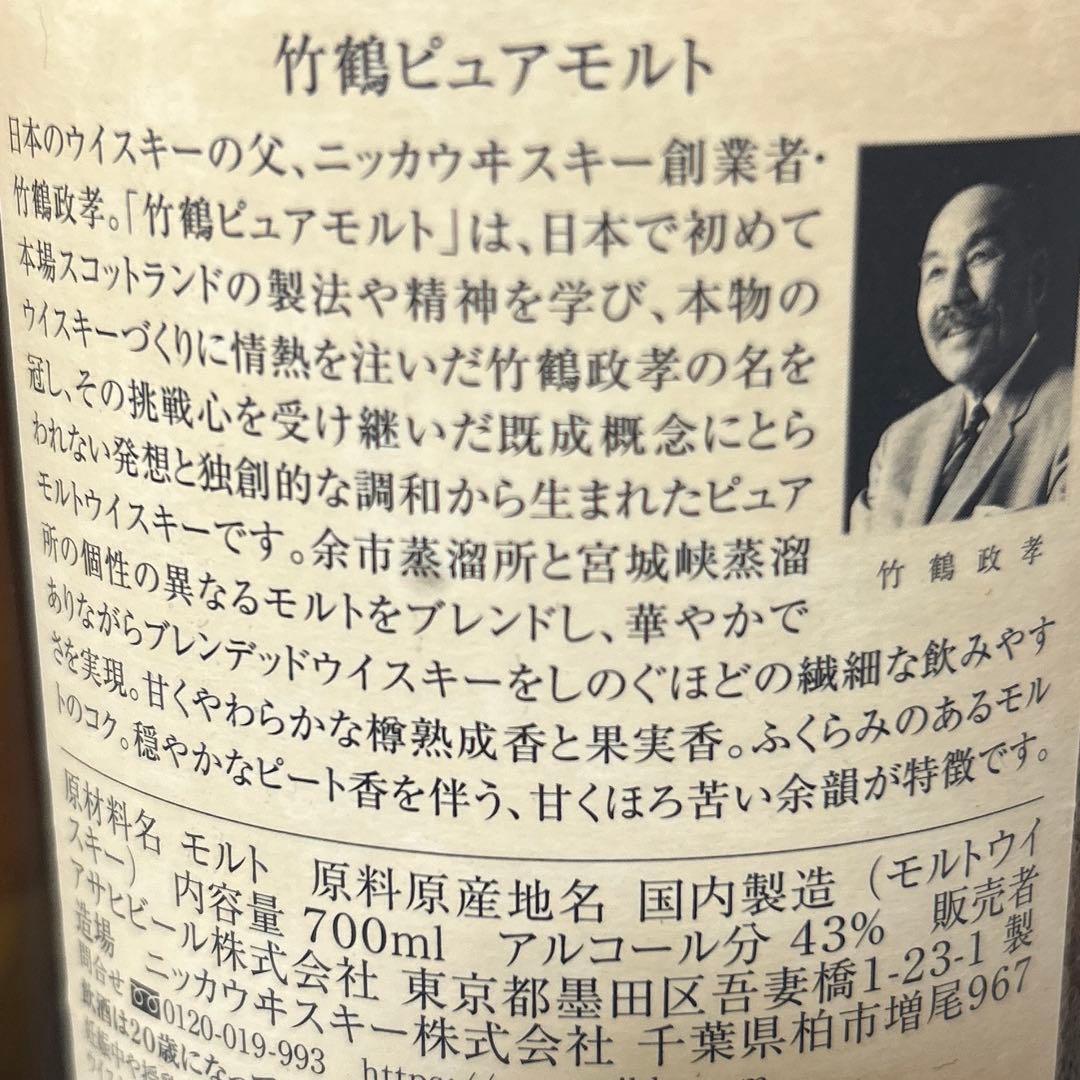 竹鶴ピュアモルト
日本のウイスキーの父、ニッカウヰスキー創業者・
竹鶴政孝。「竹鶴ピュアモルト」は、日本で初めて
本場スコットランドの製法や精神を学び、本物の
ウイスキーづくりに情熱を注いだ竹鶴政孝の名を
冠し、その挑戦心を受け継いだ既成概念にとら
われない発想と独創的な調和から生まれたピュア
モルトウイスキーです。余市蒸溜所と宮城峡蒸溜
所の個性の異なるモルトをブレンドし、華やかで
ありながらブレンデッドウイスキーをしのぐほどの繊細な飲みやす
さを実現。甘くやわらかな樽熟成香と果実香。ふくらみのあるモル
トのコク。穏やかなピート香を伴う、甘くほろ苦い余韻が特徴です。
竹鶴政孝
原材料名 モルト 原料原産地名 国内製造 (モルトウイ
スキー) 内容量 700ml アルコール分 43% 販売者
アサヒビール株式会社 東京都墨田区吾妻橋1-23-1 製
造場 ニッカウヰスキー株式会社 千葉県柏市増尾967
問合せ 0120-019-993 https://
飲酒は20歳になっ
妊娠中や授